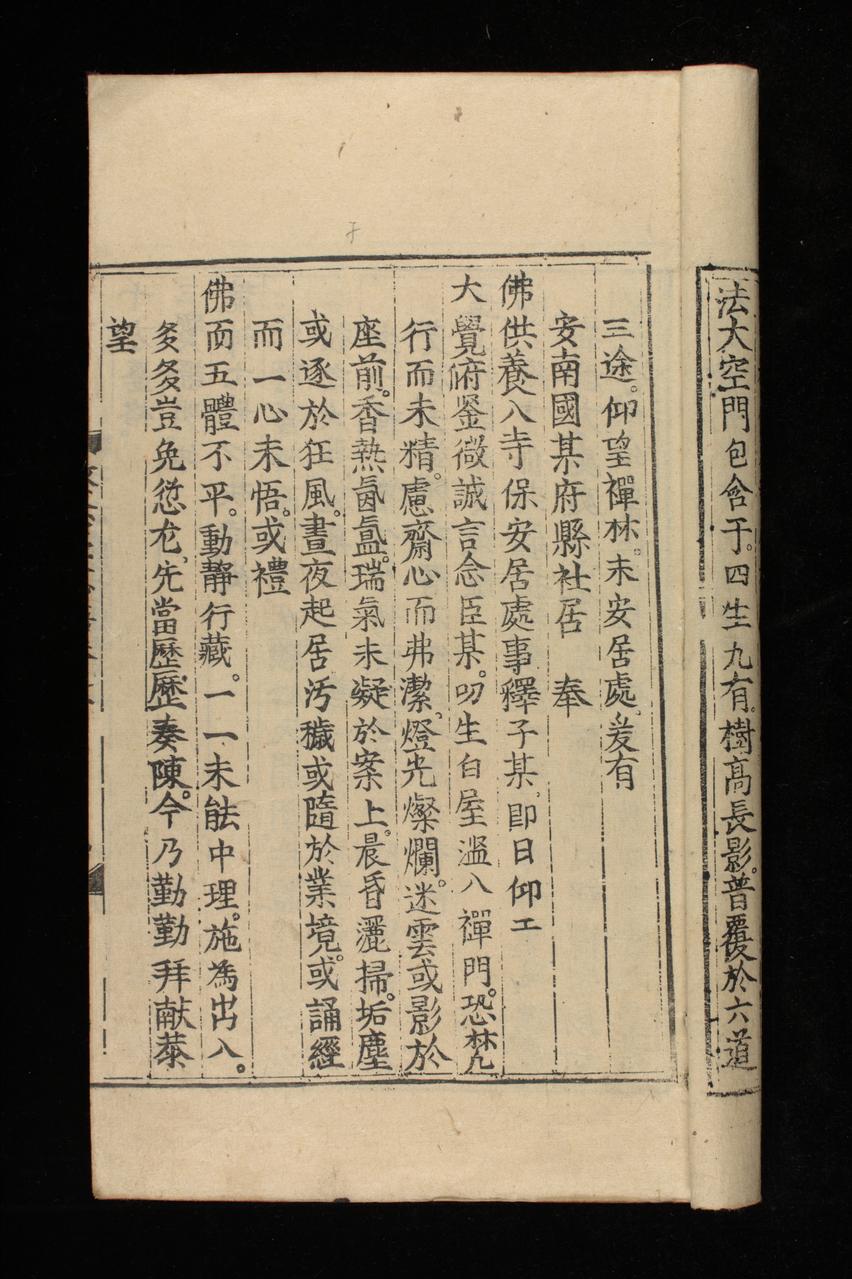 法大空門包含于。四生九有。樹高長影。普覆於六道
三途。仰望禪林。未安居處。爰有
安南國某府縣社居　奉
佛供養入寺保安居處事釋子某。即日仰工
大覺俯鉴微誠言念臣某。叨生白屋溫入禪門。恐梵
行而未精。慮齋心而弗潔。燈光燦爛。迷雲或影於
座前。香熱氤氳。瑞氣未凝於案上。晨昏灑掃。垢塵
或逐於狂風。晝夜起居汚穢或隨於業境。或誦經
而一心未悟。或禮
佛而五體不平。動靜行藏。一一未能中理。施為出入。
多多豈免愆尤。先當歷歷奏陳。今乃勤勤拜献恭
望